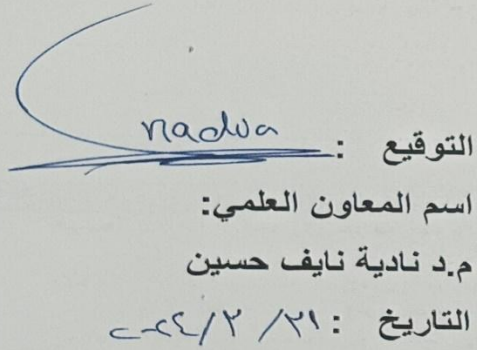 nadua
التوقيع :
اسم المعاون العلمي:
م.د نادية نايف حسين
التاريخ : ٢١/ ٢/ ٢٠٢٤